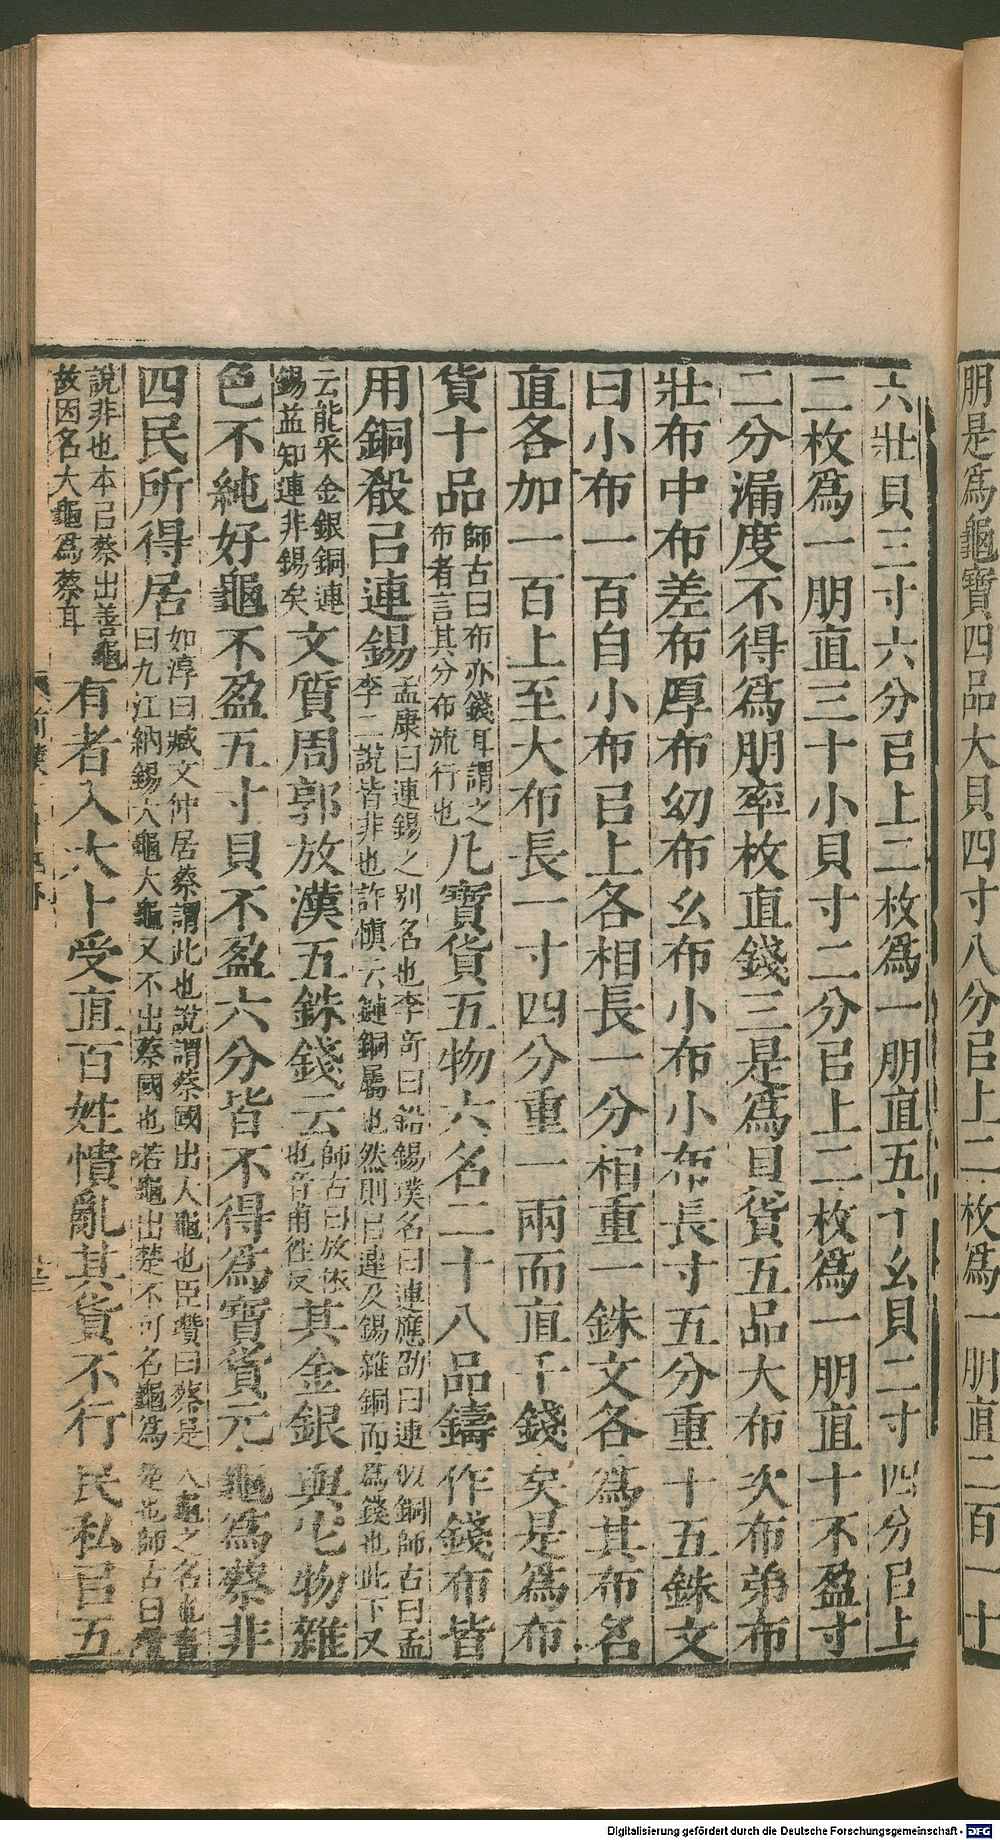 朋是爲龜寶四品大貝四寸八分㠯上二枚爲一朋直二百一十
六壯貝三寸六分㠯上二枚爲一朋直五十幺貝二寸四分㠯上
二枚爲一朋直三十小貝寸二分㠯上二枚爲一朋直十不盈寸
二分漏度不得爲朋率枚直錢三是爲貝貨五品大布次布弟布
壯布中布差布厚布幼布幺布小布小布長寸五分重十五銖文
曰小布一百自小布㠯上各相長一分相重一銖文各爲其布名
直各加一百上至大布長一寸四分重一兩而直千錢矣是爲布
貨十品師古曰布亦錢耳謂之布者言其分布流行也凡寶貨五物六名二十八品鑄作錢布皆
用銅殽㠯連錫孟康曰連錫之別名也李奇曰鉛錫璞名曰連應劭曰連似銅師古曰孟李二說皆非也許愼云鏈銅屬也然則㠯連及錫雜銅而爲錢也此下又
云能采金銀銅連錫益知連非錫矣文質周郭放漢五銖錢云師古曰放依也音甫往反其金銀與它物雜
色不純好龜不盈五寸貝不盈六分皆不得爲寶貨元龜爲蔡非
四民所得居如淳曰臧文仲居蔡謂此也說謂蔡國出大龜也臣瓚曰蔡是大龜之名也書曰九江納錫大龜大龜又不出蔡國也若龜出楚不可名龜爲楚也師古曰瓚
說非也本㠯蔡出善龜故因名大龜爲蔡耳有者入大卜受直百姓憒亂其貨不行民私㠯五
Digitalisierung gefördert durch die Deutsche Forschungsgemeinschaft - DFG